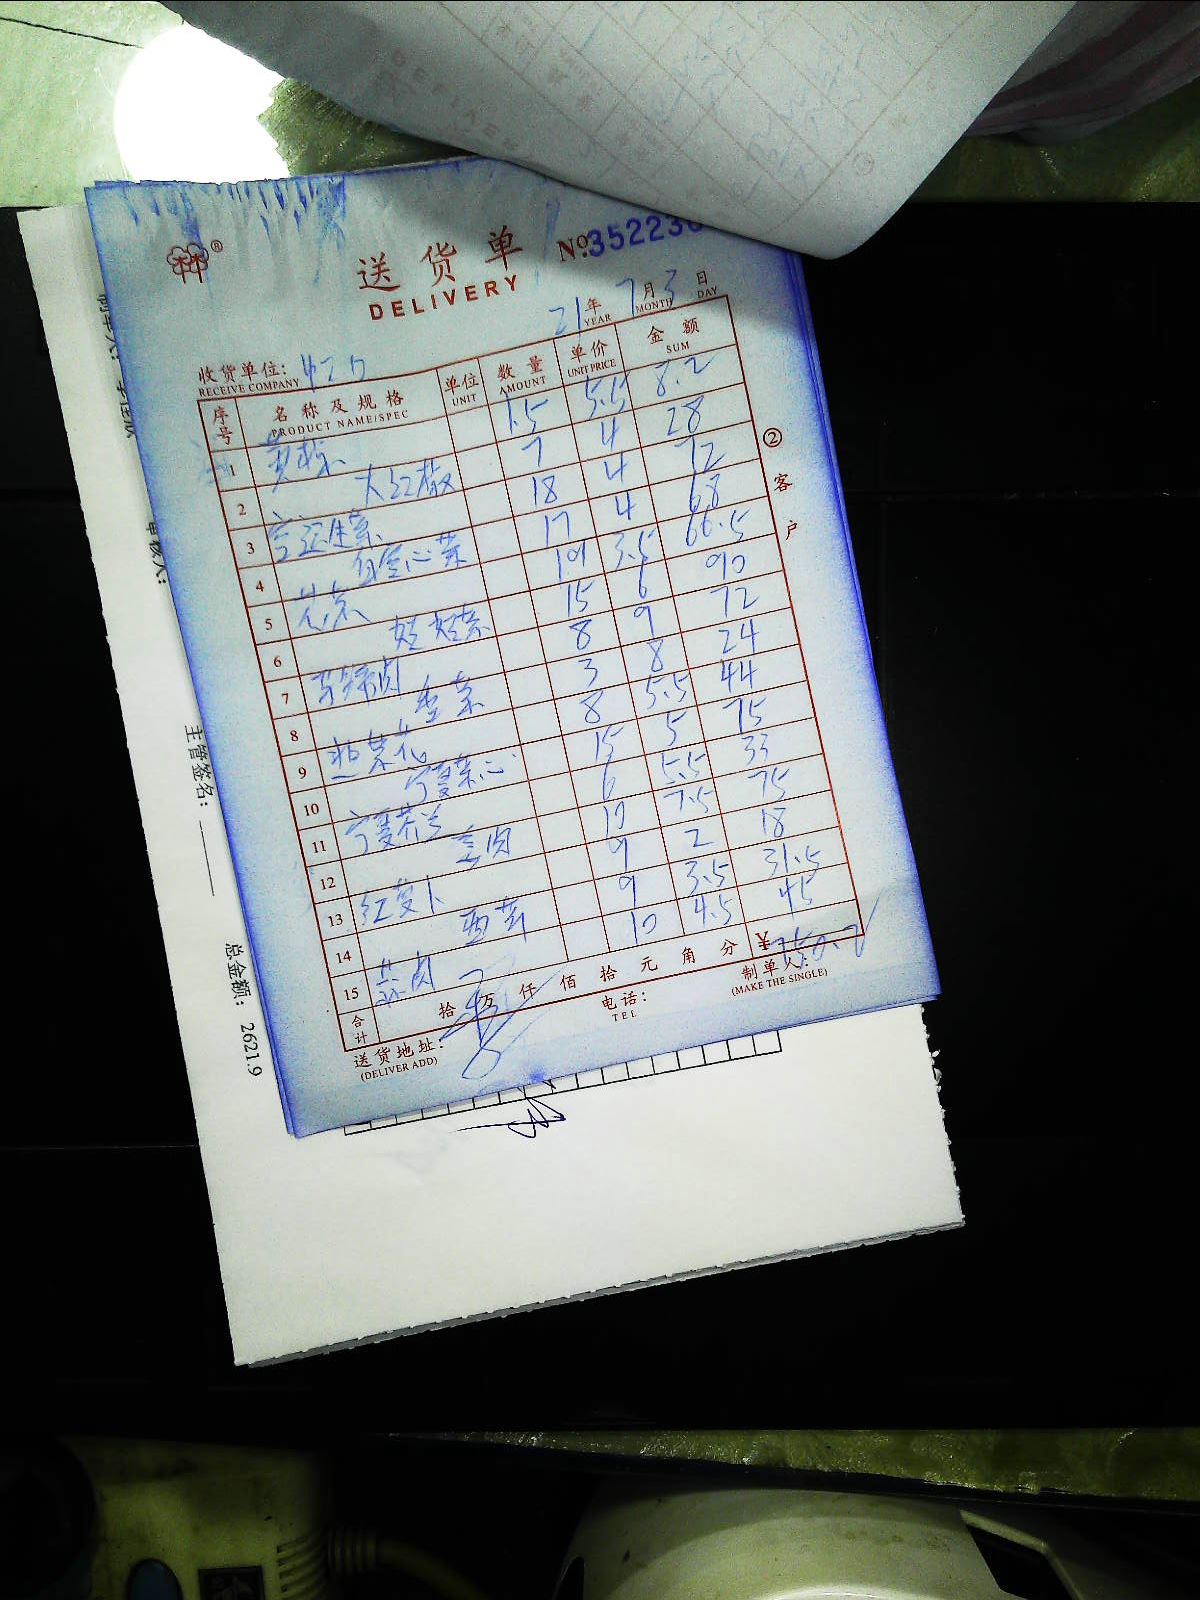 送货单
DELIVERY
№352236
21年 7月 3日
YEAR MONTH DAY
收货单位:
RECEIVE COMPANY
序号 名称及规格 单位 数量 单价 金额
PRODUCT NAME/SPEC UNIT AMOUNT UNIT PRICE SUM
1 1.5 5.5 8.2
2 大红椒 7 4 28
3 生菜 18 4 72
4 白空心菜 17 4 68
5 19 3.5 66.5
6 娃娃菜 15 6 90
7 8 9 72
8 香菜 3 8 24
9 韭菜花 8 5.5 44
10 宁夏菜心 15 5 75
11 宁夏芥兰 6 5.5 33
12 10 7.5 75
13 红萝卜 9 2 18
14 西芹 9 3.5 31.5
15 10 4.5 45
合计 拾 万 仟 佰 拾 元 角 分 ¥750.2
送货地址:
(DELIVER ADD)
电话:
TEL
制单人:
(MAKE THE SINGLE)
②客户
审核人:
主管签名:
总金额: 2621.9